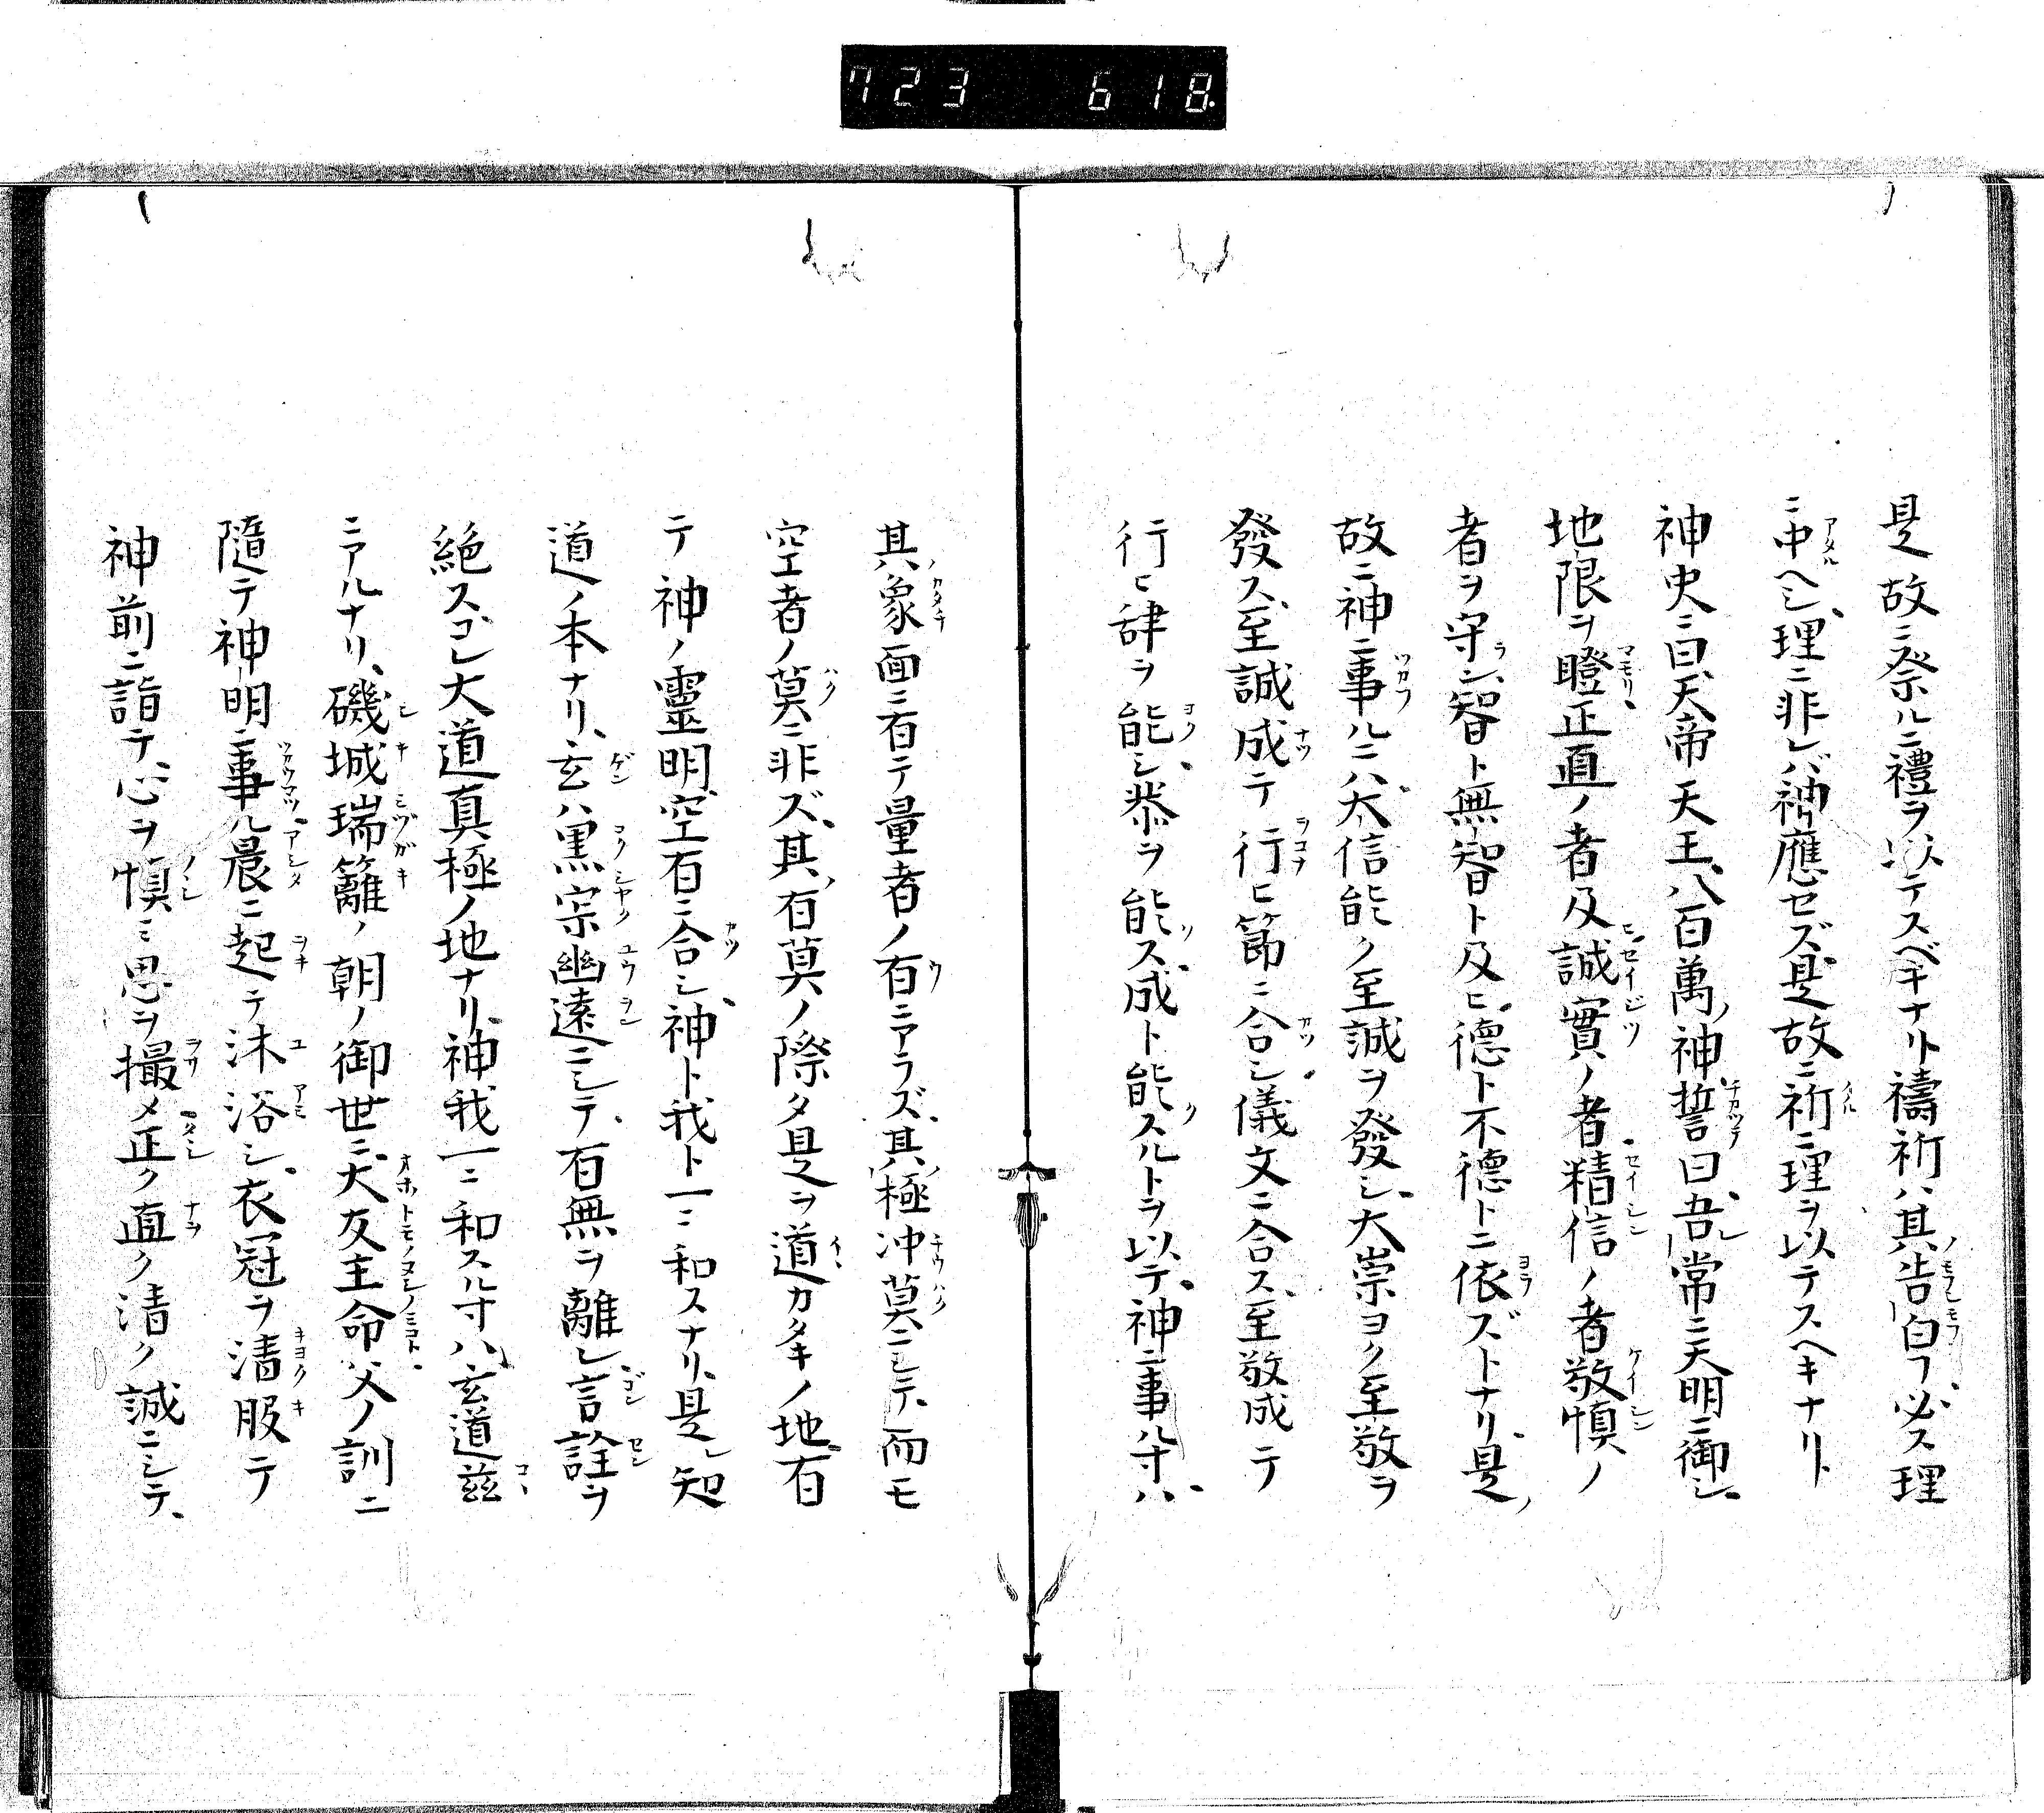 723 618
是故ニ祭ルニ禮ヲ以テスベキナリト禱祈ハ其告白フ必ス理
ニ中ヘシ、理ニ非レバ神應ゼズ是故ニ祈ニ理ヲ以テスヘキナリト
神史ニ曰、天帝天王、八百萬ノ神誓曰、吾常ニ天明ニ御シ、
地限ヲ瞪正直ノ者及ヒ誠實ノ者精信ノ者敬慎ノ
者ヲ守ラン、智ト無智ト及ヒ德ト不德トニ依ズトナリ、是ノ
故ニ神ニ事ルニハ、太信能ク至誠ヲ發シ、大崇ヨク至敬ヲ
發ス、至誠成テ行ヒ節ニ合シ、儀文ニ合ス、至敬成テ
行ヒ肆ヲ能シ、恭ヲ能ス、成ト能スルトヲ以テ、神ニ事ル寸ハ、
其ノ象面ニ有テ量者ノ有ニアラズ、其ノ極冲莫ニシテ、而モ
空者ノ莫ニ非ズ、其ノ有莫ノ際タ是ヲ道カタキノ地、有
テ神ノ靈明、空有ニ合シ、神ト我ト一ニ和スナリ、是レ知
道ノ本ナリ、玄ハ黒寂幽遠ニシテ、有無ヲ離レ、言詮ヲ
絶スコレ大道真極ノ地ナリ、神我一ニ和スル寸ハ、玄道茲
ニアルナリ、磯城瑞籬ノ朝ノ御世ニ、大友主命、父ノ訓ニ
隨テ神明ニ事ル、晨ニ起テ沐浴シ、衣冠ヲ清服テ
神前ニ詣テ、心ヲ慎ミ思ヲ撮メ正ク直ク清ク誠ニシテ、